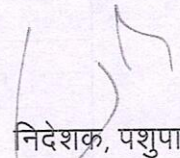 निदेशक, पशुपा